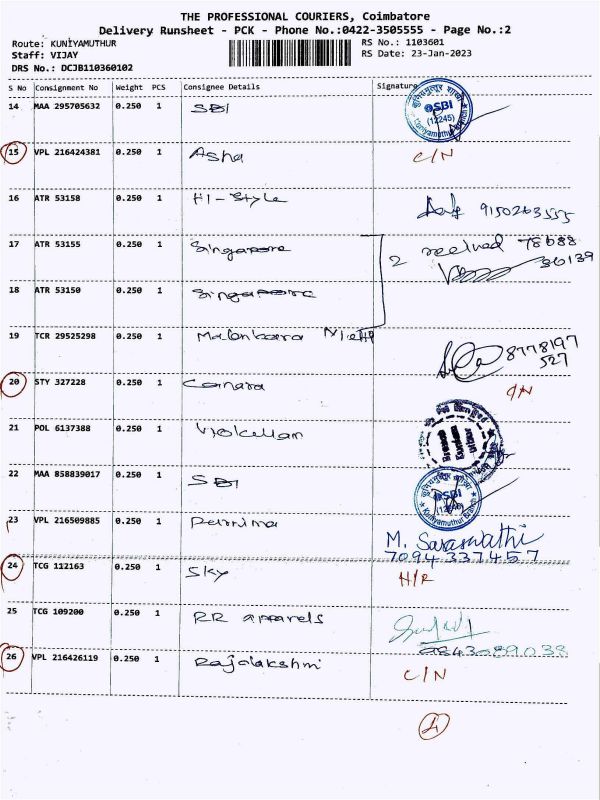 THE PROFESSIONAL COURIERS, Coimbatore
Delivery Runsheet - PCK - Phone No.:0422-3505555 - Page No.:2
Route: KUNIYAMUTHUR RS No.: 1103601
Staff: VIJAY RS Date: 23-Jan-2023
DRS No.: DCJB110360102
S No Consignment No Weight PCS Consignee Details Signature
14 MAA 295705632 0.250 1 SBI SBI (12245) Kuniyamuthur Branch
15 VPL 216424381 0.250 1 Asha C/N
16 ATR 53158 0.250 1 HI-Style 9150263555
17 ATR 53155 0.250 1 Singapore 2 received 78688
36139
18 ATR 53150 0.250 1 Singapore
19 TCR 29525298 0.250 1 Malankara 8778197
527
20 STY 327228 0.250 1 Canara C/N
21 POL 6137388 0.250 1
22 MAA 858839017 0.250 1 SBI SBI Kuniyamuthur Branch
23 VPL 216509885 0.250 1 Purnima M. Saraswathi
7094337457
24 TCG 112163 0.250 1 Sky H/R
25 TCG 109200 0.250 1 RR apparels
9843089038
26 VPL 216426119 0.250 1 Rajalakshmi C/N
4